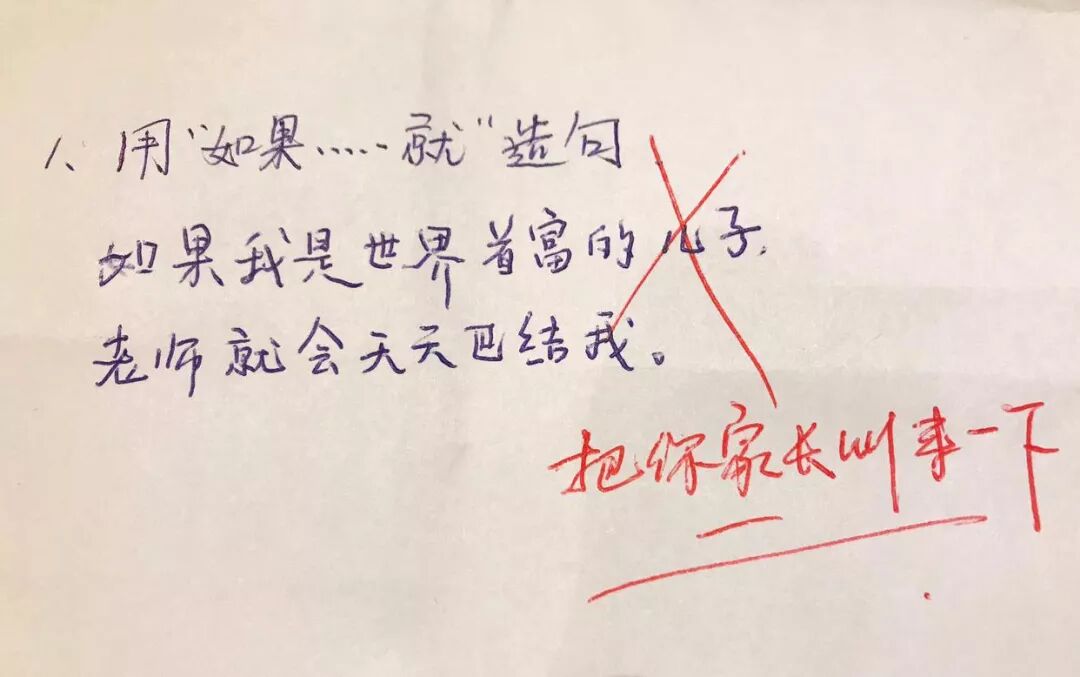 1、用"如果……就"造句
如果我是世界首富的儿子,
老师就会天天巴结我。
把你家长叫来一下